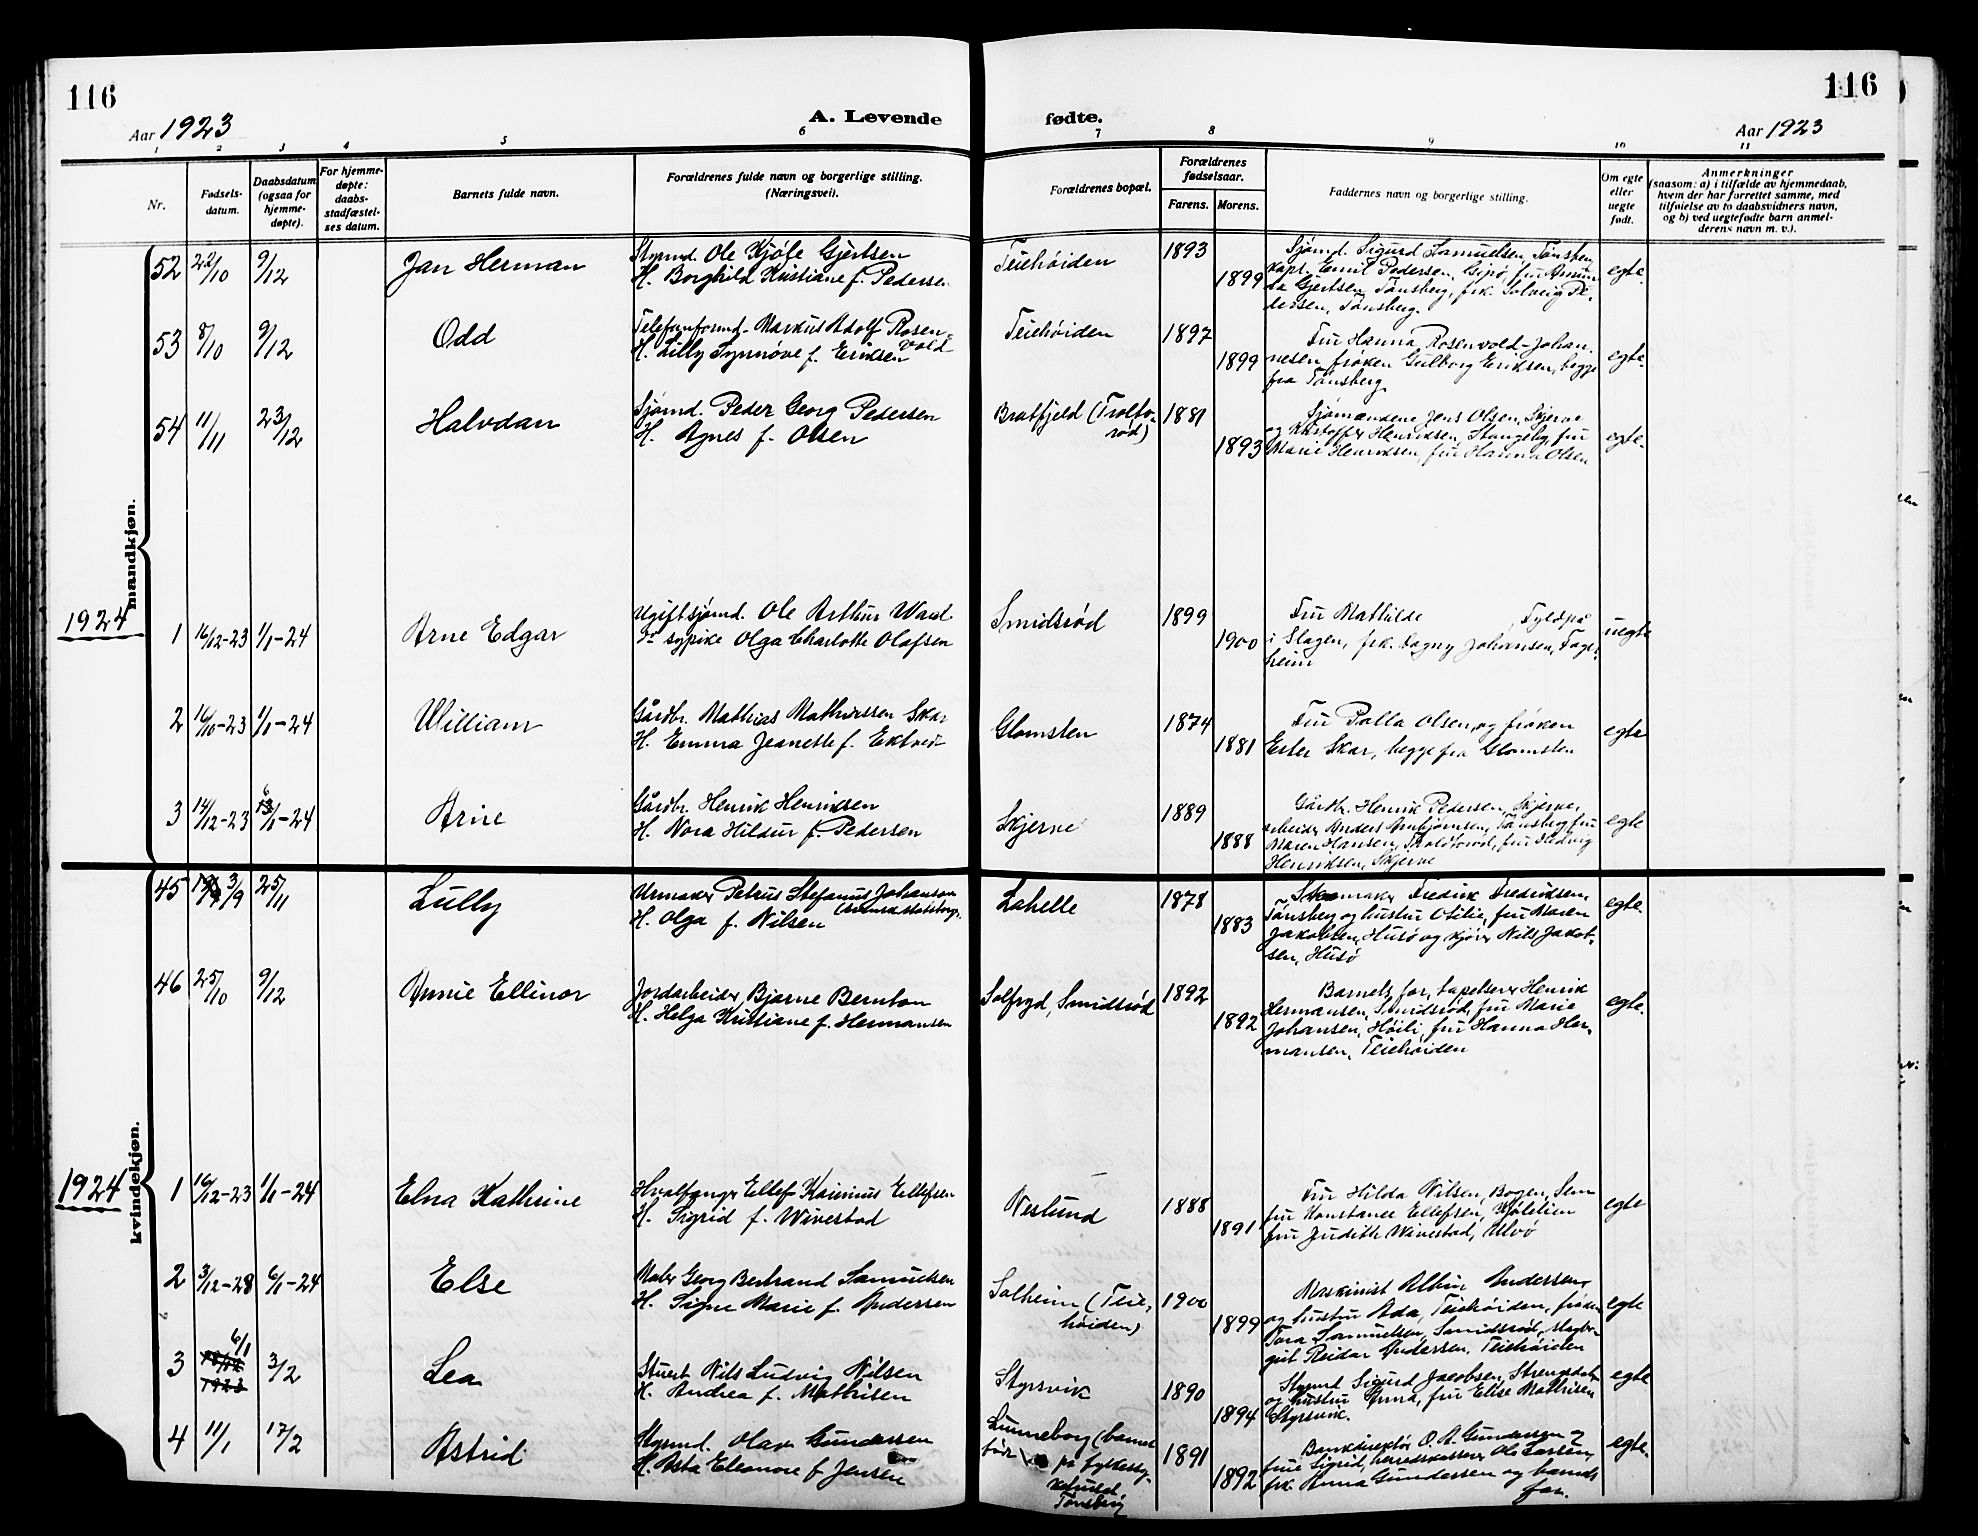 116
Aar 1923
A. Levende fødte.
116
Aar 1923
1 2 3 4 5 6 7 8 9 10 11
Nr.
Fødsels-
datum.
Daabsdatum
(ogsaa for
hjemme-
døpte).
For hjemme-
døpte:
daabs-
stadfæstel-
ses datum.
Barnets fulde navn.
Forældrenes fulde navn og borgerlige stilling.
(Næringsvei).
Forældrenes bopæl.
Forældrenes
fødselsaar.
Farens. Morens.
Faddernes navn og borgerlige stilling.
Om egte
eller
uegte
født.
Anmerkninger
(saasom: a) i tilfælde av hjemmedaab,
hvem der har forrettet samme, med
tilføielse av to daabsvidners navn,
og b) ved uegtefødte barn anmel-
derens navn m. v.).
mandkjøn.
52 22/10 9/12 Jan Herman
Styrmd. Ole Kjøle Gjertsen
H. Borghild Kristiane f. Pedersen
Teiehøiden 1893 1899
Sjømd. Sigurd Samuelsen, Tønsberg
Kapt. Emil Pedersen, fru
Gjertsen, Tønsberg, frk. Solveig Pe-
dersen, Tønsberg.
egte.
53 8/10 9/12 Odd
Telefonformd. Markus Adolf Rosen-
vold
H. Lilly Synnøve f. Eriksen
Teiehøiden 1897 1899
Fru Hanna Rosenvold-Johan-
nesen, frøken Gulborg Eriksen, begge
fra Tønsberg
egte.
54 11/11 23/12 Halvdan
Sjømd. Peder Georg Pedersen
H. Agnes f. Olsen
Bratfjeld (Troldo-
rød) 1881 1893
Sjømændene Jens Olsen, Skjerve
og Kristoffer Henriksen, Stangeby, fru
Marie Henriksen, fru Hanna Olsen
egte.
1924
1 16/12-23 1/1-24 Arne Edgar
Ugift sjømd. Ole Arthur Waal
sypike Olga Charlotte Olafsen
Smidsrød 1899 1900
Fru Mathilde
i Slagen, frk. Dagny Johansen, Fager-
heim
uegte
2 16/10-23 1/1-24 William
Gårdbr. Mathias Mathissen Skar
H. Emma Jeanette f. Ektved
Glomsten 1874 1881
Fru Palla Olsen, og frøken
Ester Skar, begge fra Glomsten
egte
3 14/12-23 6/1-24 Arne
Gårdbr. Henrik Henriksen
H. Nora Hildur f. Pedersen
Skjerve 1889 1888
Gårdbr. Henrik Pedersen, Skjerve,
arbeider Anders Arnbjørnsen, Tønsberg fru
Maren Hansen, fru Hedvig
Henriksen, Skjerve
egte
kvindekjøn.
45 3/9 25/11 Lully
Urmaker Petrus Stefanus Johanson
(svensk statsborg.
H. Olga f. Nilsen
Lahelle 1878 1883
Fredrik Fredriksen,
Tønsberg og hustru Otilie, fru Maren
Jakobsen, Husø og kjører Nils Jakob-
sen, Husø
egte.
46 25/10 9/12 Annie Ellinor
Jordarbeider Bjarne Berntson
H. Helga Kristiane f. Hermansen
Solfryd, Smidsrød 1892 1892
Barnets far, tapetserer Henrik
Hermansen, Smidsrød, fru Marie
Johansen, Høili, fru Hanna Her-
mansen, Teiehøiden
egte.
1924
1 16/12-23 1/1-24 Elna Kathrine
Hvalfanger Ellef Kasinius Ellefsen
H. Sigrid f. Wivestad
Neslund 1888 1891
Fru Hilda Nilsen, Bogen, Sem
fru Konstance Ellefsen,
fru Judith Wivestad, Ulvø
egte
2 3/12-28 6/1-24 Else
Maler Georg Bertrand Samuelsen
H. Signe Marie f. Andersen
Solheim (Teie-
høiden) 1900 1899
Maskinist Albin Andersen,
og hustru Ada, Teiehøiden, frøken
Tora Samuelsen, Smidsrød,
gut Reidar Andersen, Teiehøiden
egte
3 6/1 3/2 Lea
Stuert Nils Ludvig Nilsen
H. Andrea f. Mathisen
Styrsvik 1890 1894
Styrmd Sigurd Jacobsen,
og hustru Anna, fru Elise Mathisen
Styrsvik.
egte
4 11/1 17/2 Astrid
Styrmd. Olav Gundersen
H. Asta Eleonore f. Jensen
Lunneborg (barnet
født på fylkessy-
kehuset
Tønsberg 1891 1892
Bankdirektør O. A. Gundersen og
frue Sigrid, herredskasserer Ole Larsen,
frk. Anna Gundersen og barnets
far.
egte.